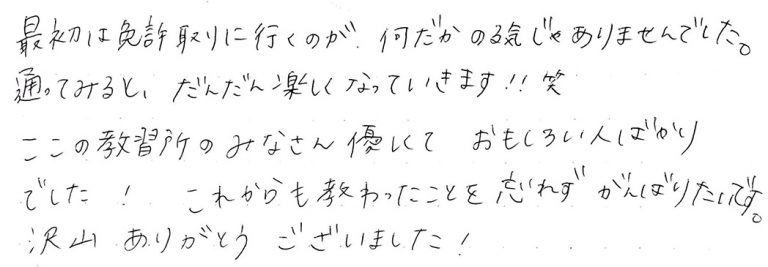 最初は免許取りに行くのが、何だか のる気じゃありませんでした。
通ってみると、だんだん楽しくなっていきます!! 笑
ここの教習所のみなさん優しくて おもしろい人ばかり
でした! これからも教わったことを忘れず がんばりたいです。
沢山 ありがとう ございました!